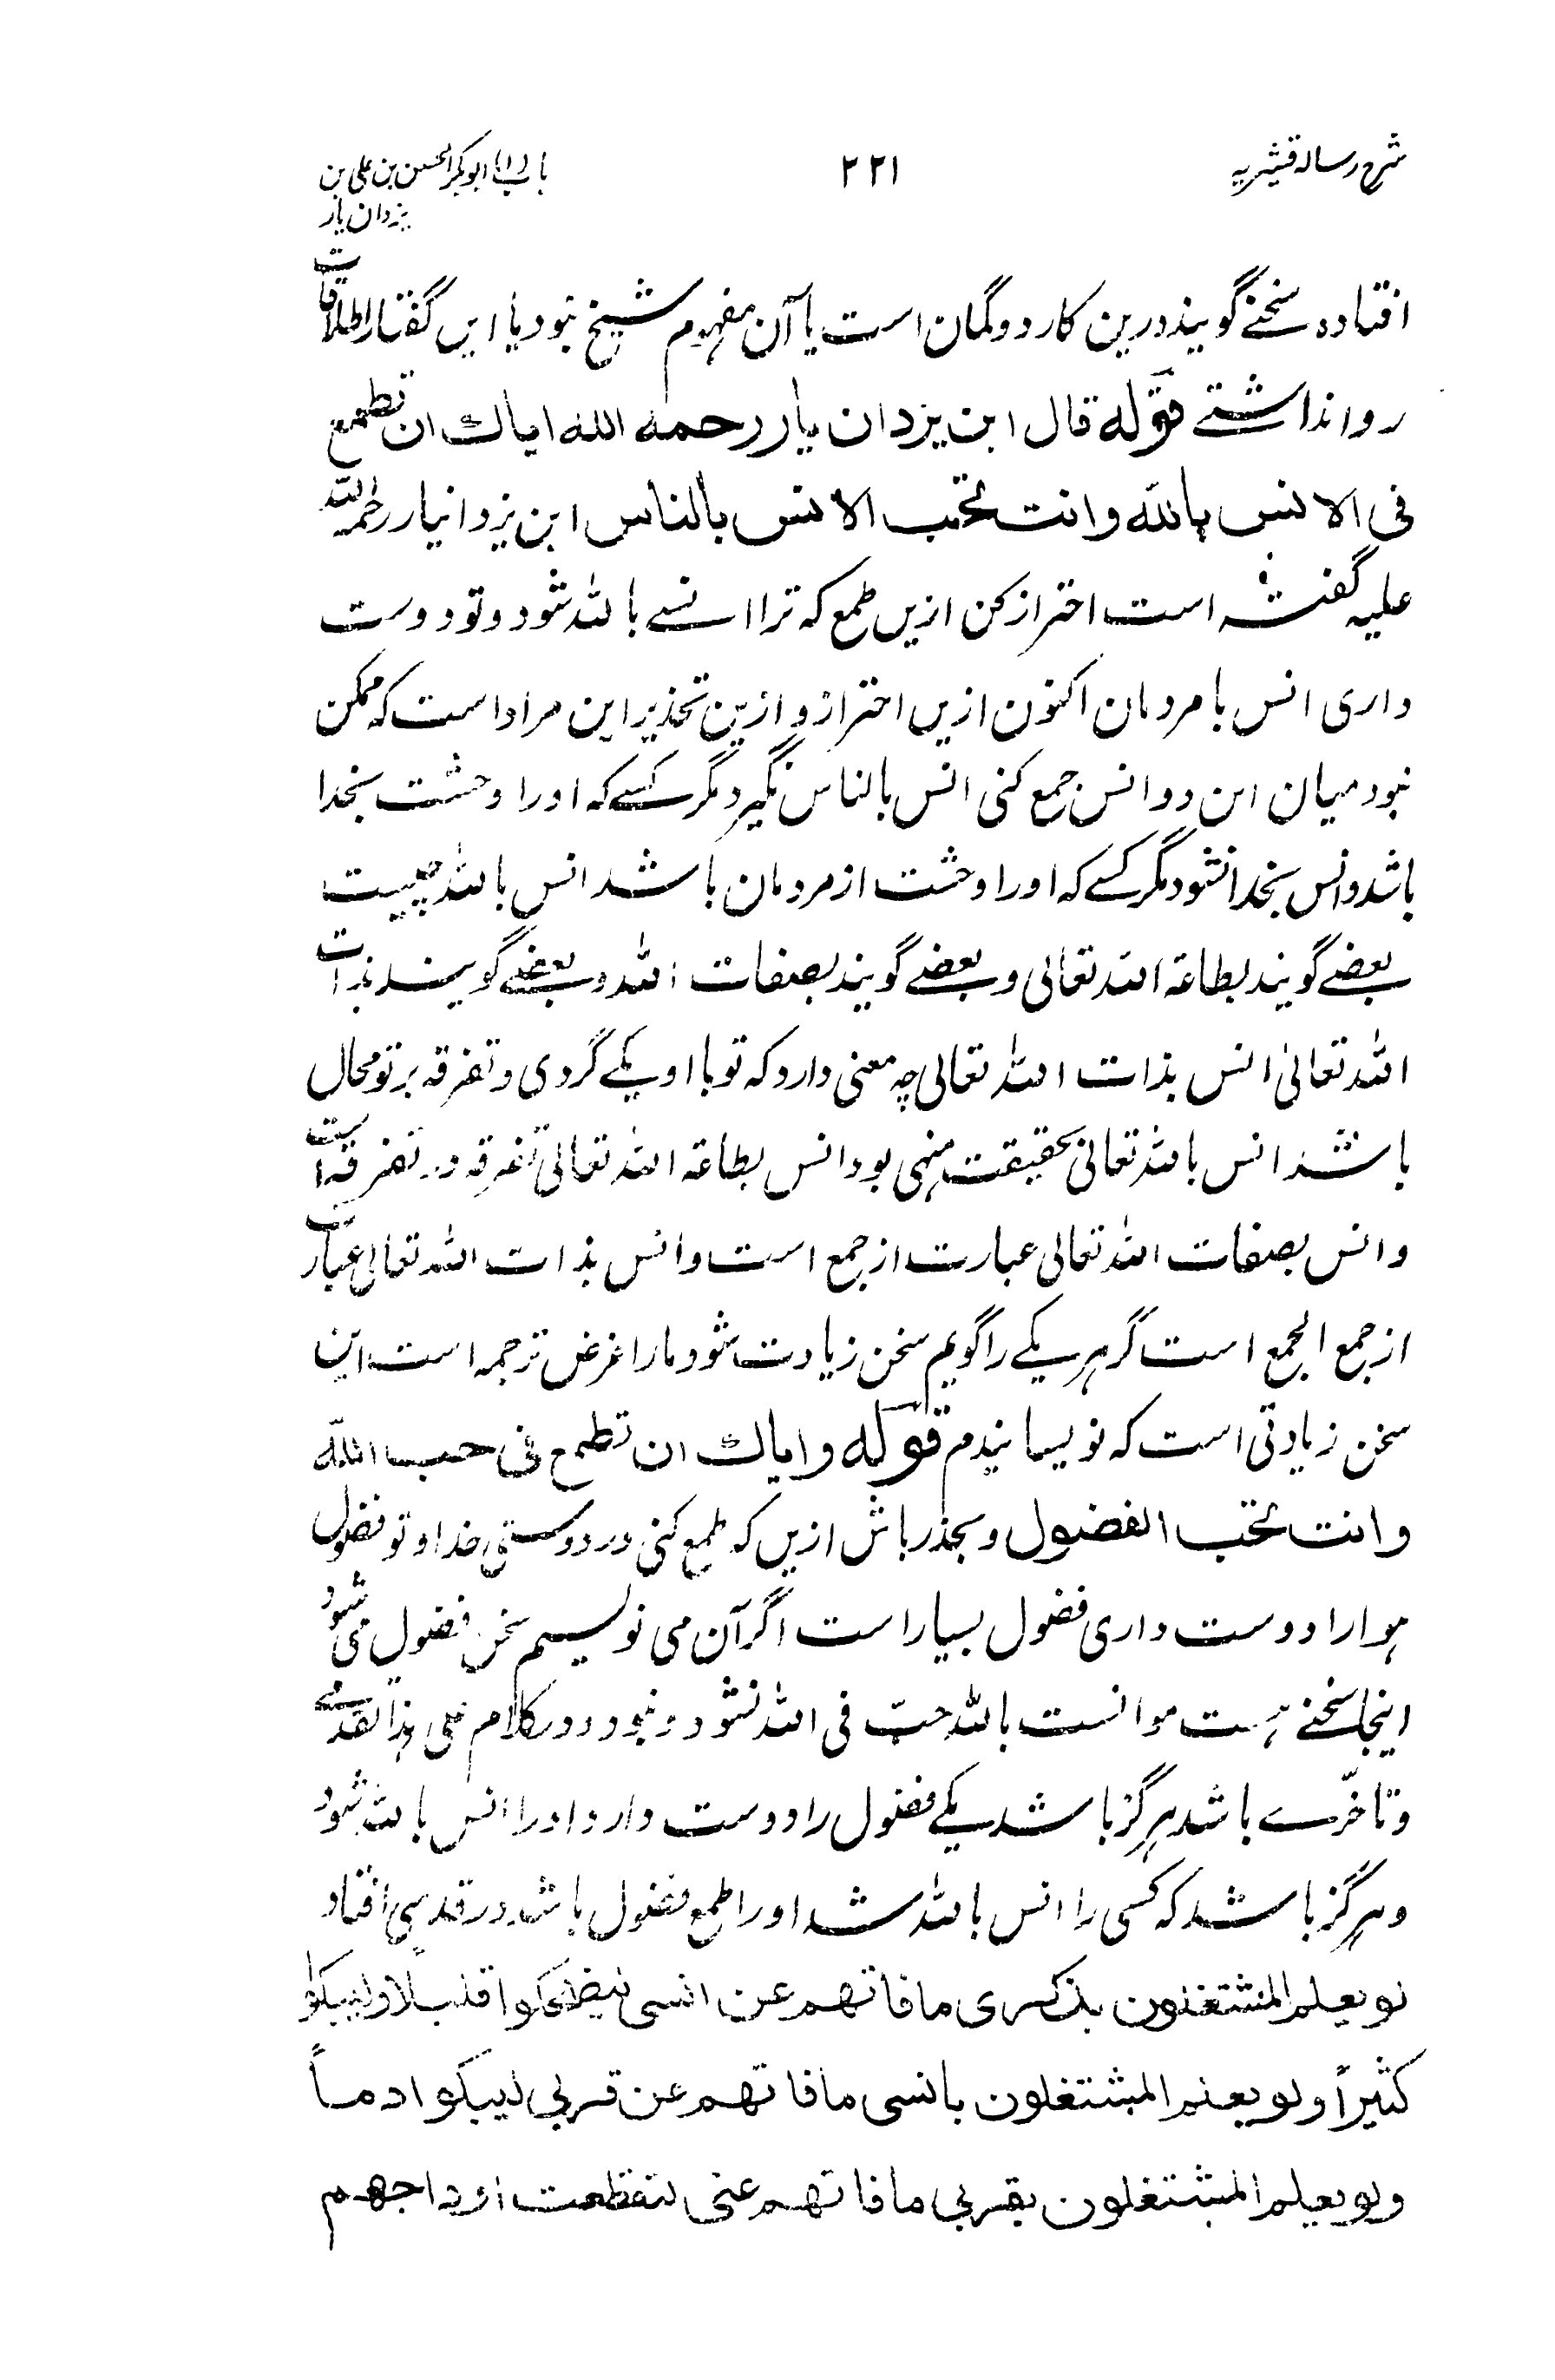 شرح رسالہ قشیریہ
۲۲۱
باب ابوبکر الحسین بن علی بن
یزدان یار
افتادہ سخنے گویند درین کار دو گمان است یا آن مفہوم شیخ نبود یا ایں گفتار اطلاقات
روا نداشتے قولہ قال ابن یزدان یار رحمہ اللہ ایاك ان تطمع
فی الانس باللہ وانت تحب الانس بالناس ابن یزدانیار رحمہ اللہ
علیہ گفتہ است احتراز کن ازیں طمع کہ ترا انسے باللہ شود و تو دوست
داری انس با مردمان اکنون ازیں احتراز و ازین تحذیر این مراد است کہ ممکن
نبود میان این دو انس جمع کنی انس بالناس نگیرد مگر کسے کہ اورا وحشت بخدا
باشد و انس بخدا نشود مگر کسے کہ اورا وحشت از مردمان باشد انس باللہ چیست
بعضے گویند بطاعۃ اللہ تعالی و بعضے گویند بصفات اللہ و بعضے گویند بذات
اللہ تعالیٰ انس بذات اللہ تعالی چہ معنی دارد کہ تو با او یکے گردی و تفرقہ بر تو محال
باشد انس باللہ تعالیٰ بحقیقت منہی بود انس بطاعۃ اللہ تعالیٰ تفرقہ در تفرقہ است
و انس بصفات اللہ تعالی عبارت از جمع است و انس بذات اللہ تعالی عبارت
از جمع الجمع است گر ہر یکے را گویم سخن زیادت شود مارا غرض ترجمہ است این
سخن زیادتی است کہ نویسانیدم قولہ وایاك ان تطمع فی حب اللہ
وانت تحب الفضول و بحذر باش ازیں کہ طمع کنی در دوستی خدا و تو فضول
ہوارا دوست داری فضول بسیار است اگر آن می نویسیم سخن فضول می شود
اینجا سخنے ہست موانست باللہ حبّ فی اللہ نشود و نبود و در کلام علی ہذا تقدمے
و تأخّرے باشد ہرگز باشد یکے فضول را دوست دارد و اورا انس باللہ شود
و ہرگز باشد کہ کسی را انس باللہ شد اورا طمع فضول باشد در قدسی افتاد
لو یعلم المشتغلون بذکری ما فاتهم عن انسی لیضحکوا قلیلًا ولیبکوا
کثیراً ولو یعلم المشتغلون بانسی ما فاتهم عن قربی لیبکوا دماً
ولو یعلم المشتغلون بقربی ما فاتهم عنی لتقطعت اوداجهم